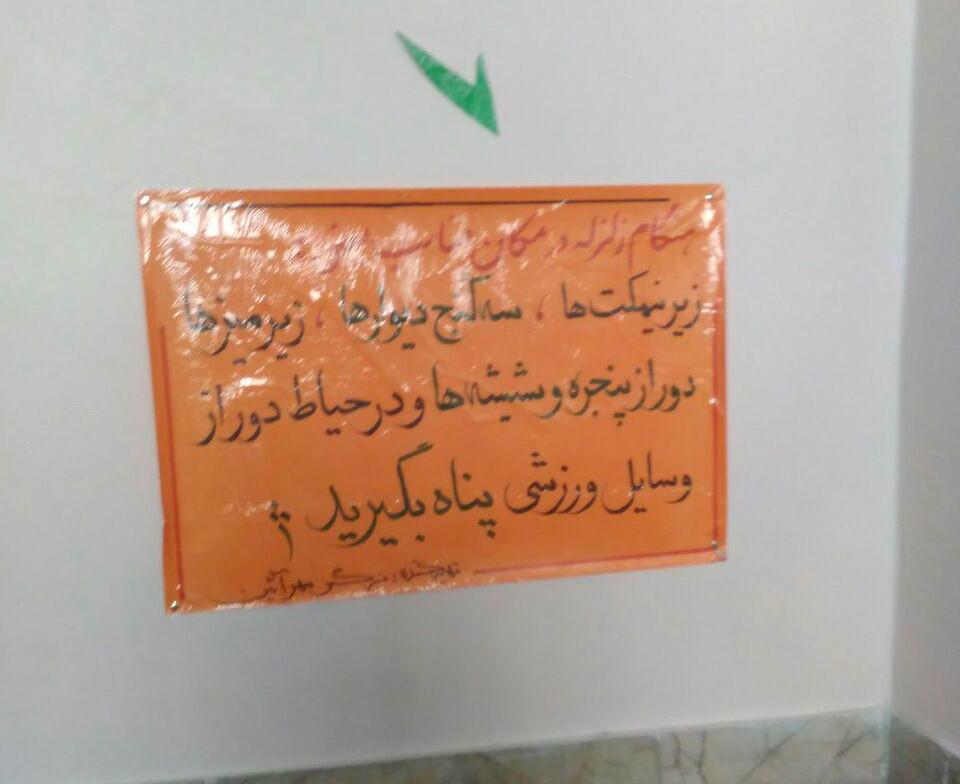 هنگام زلزله در مکان مناسب
زیر نیمکت‌ها ، سه کنج دیوارها ، زیر میزها
دور از پنجره و شیشه‌ها و در حیاط دور از
وسایل ورزشی پناه بگیرید
تهیه کننده : نرگس مهرآئین